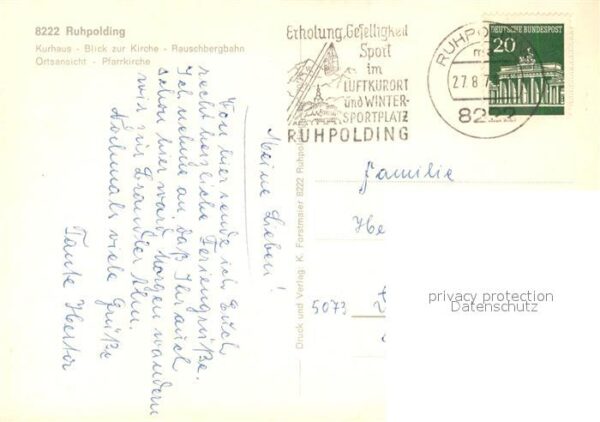 8222 Ruhpolding
Kurhaus - Blick zur Kirche - Rauschbergbahn
Ortsansicht - Pfarrkirche
Meine Lieben!
Von hier sende ich Euch
recht herzliche Feriengrüße.
Ich nehme an, daß Ihr auch
schon hier ward. Morgen wandern
wir zur Brander Alm.
Nochmals viele Grüße
Tante
Druck und Verlag: K. Forstmaier 8222 Ruhpolding
Erholung, Geselligkeit
Sport
im
LUFTKURORT
und WINTER-
SPORTPLATZ
RUHPOLDING
RUHPO
27.8.7
8222
20
DEUTSCHE BUNDESPOST
Familie
He
5073
privacy protection
Datenschutz